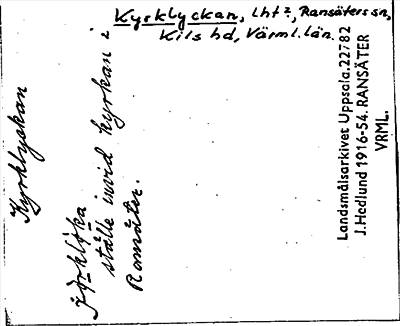 Kyrklyckan, lht², Ransäters sn,
Kils hd, Värml. län.
Kyrklyckan
ställe invid kyrkan i
Ransäter.
Landsmålsarkivet Uppsala. 22782
J. Hedlund 1916-54. RANSÄTER
VRML.